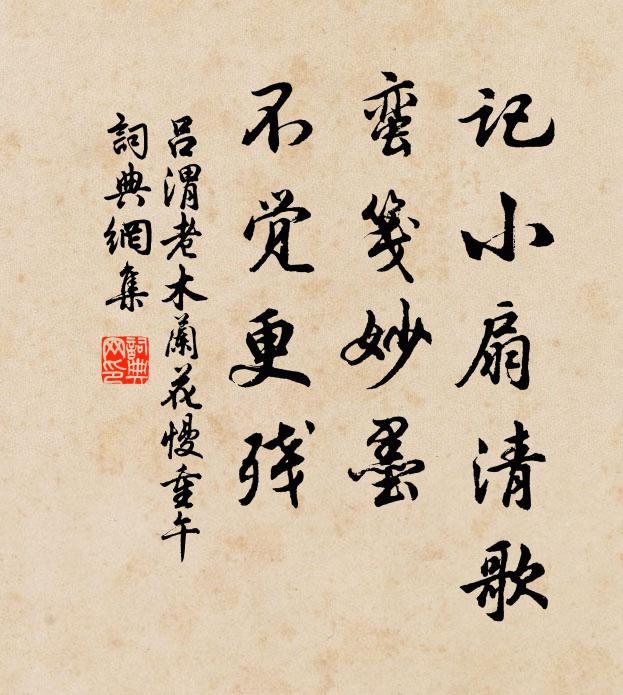 记小扇清歌
蛮笺妙墨
不觉更残
吕渭老木蘭花慢重午
詞典網集
詞典网印